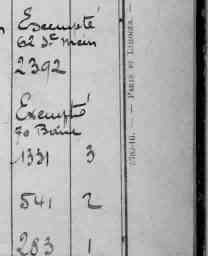 Exempté
62 St Main
2392
Exempté
70 Barre
1331 3
541 2
283 1
PARIS ET LIMOGES. —